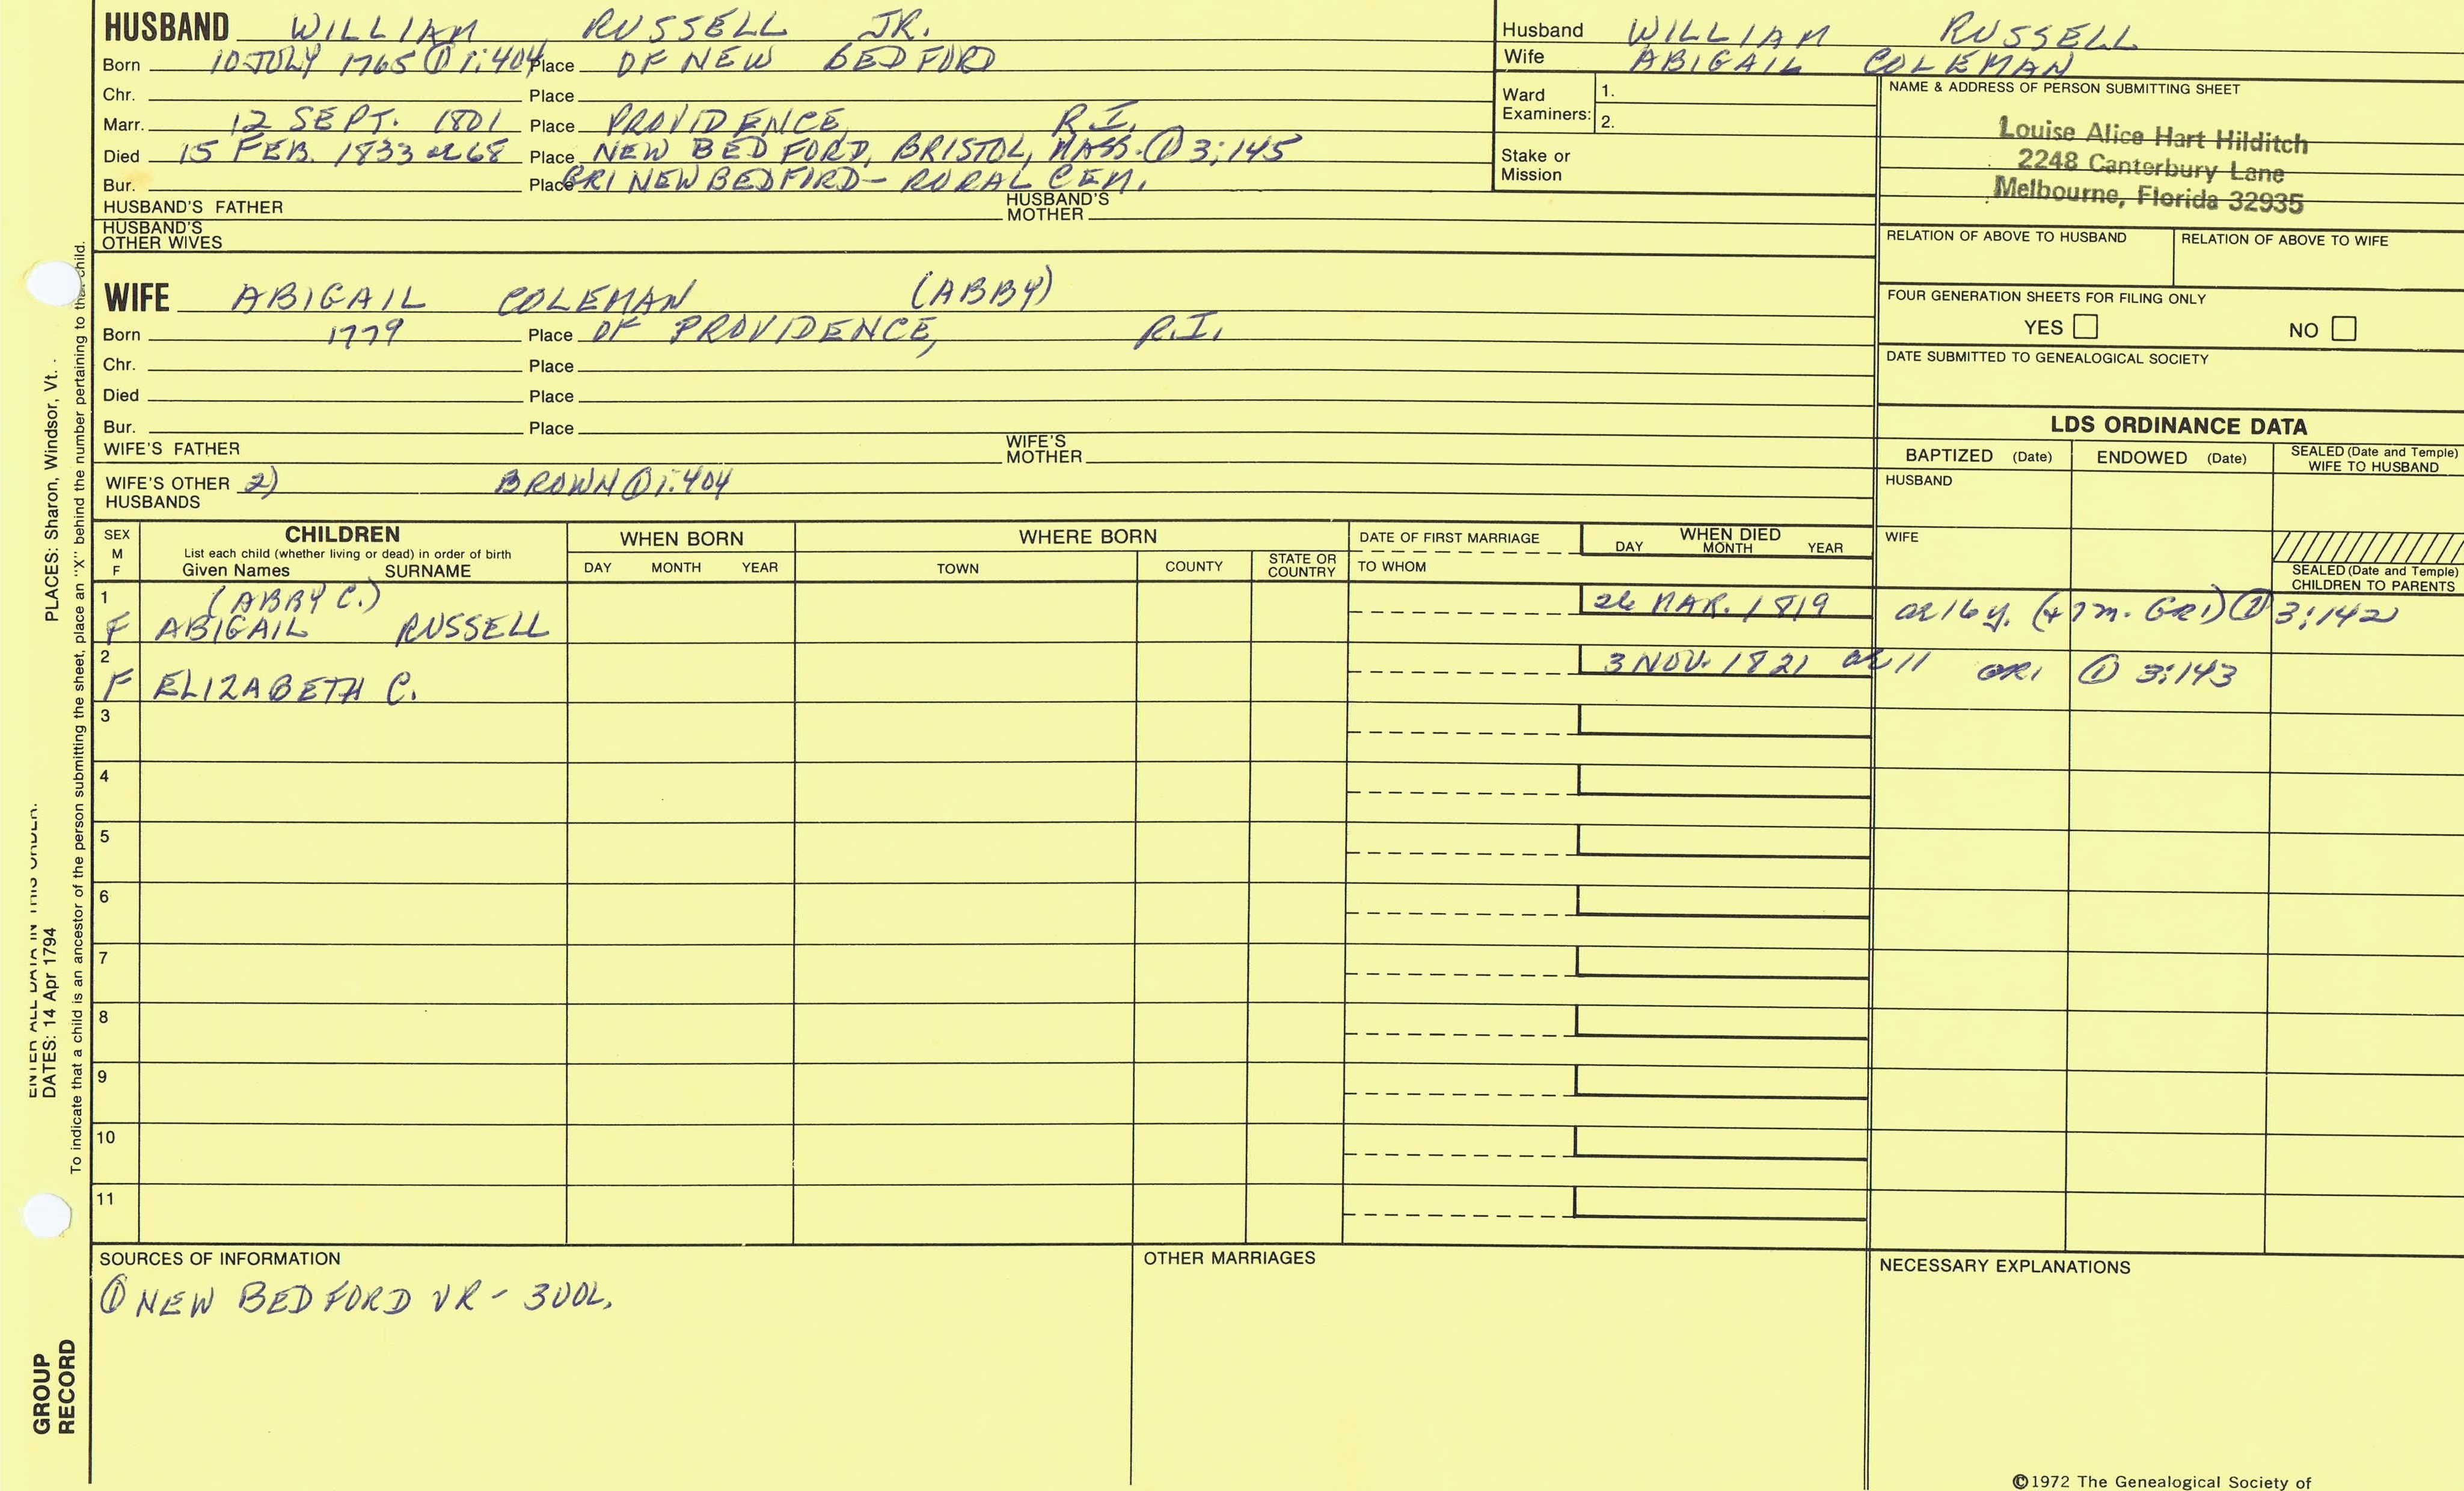 HUSBAND WILLIAM RUSSELL JR.
Born 10 JULY 1765 ① 1:404 Place OF NEW BEDFORD
Chr. Place
Marr. 12 SEPT. 1801 Place PROVIDENCE, R.I.
Died 15 FEB. 1833 ae 68 Place NEW BEDFORD, BRISTOL, MASS. ① 3:145
Bur. Place GR1 NEW BEDFORD - RURAL CEM.
HUSBAND'S FATHER HUSBAND'S MOTHER
HUSBAND'S OTHER WIVES
Husband WILLIAM RUSSELL
Wife ABIGAIL COLEMAN
Ward Examiners: 1.
2.
Stake or Mission
NAME & ADDRESS OF PERSON SUBMITTING SHEET
Louise Alice Hart Hilditch
2248 Canterbury Lane
Melbourne, Florida 32935
RELATION OF ABOVE TO HUSBAND RELATION OF ABOVE TO WIFE
FOUR GENERATION SHEETS FOR FILING ONLY
YES NO
DATE SUBMITTED TO GENEALOGICAL SOCIETY
WIFE ABIGAIL COLEMAN (ABBY)
Born 1779 Place OF PROVIDENCE, R.I.
Chr. Place
Died Place
Bur. Place
WIFE'S FATHER WIFE'S MOTHER
WIFE'S OTHER HUSBANDS 2) BROWN ① 1:404
LDS ORDINANCE DATA
BAPTIZED (Date) ENDOWED (Date) SEALED (Date and Temple) WIFE TO HUSBAND
HUSBAND
WIFE
SEALED (Date and Temple) CHILDREN TO PARENTS
SEX M F
CHILDREN
List each child (whether living or dead) in order of birth
Given Names SURNAME
WHEN BORN
DAY MONTH YEAR
WHERE BORN
TOWN COUNTY STATE OR COUNTRY
DATE OF FIRST MARRIAGE
TO WHOM
WHEN DIED
DAY MONTH YEAR
1 (ABBY C.) 26 MAR. 1819 ae 16 y. (+ 7 m. GR1) ① 3:142
F ABIGAIL RUSSELL
2 3 NOV. 1821 ae 11 GR1 ① 3:143
F ELIZABETH C.
3
4
5
6
7
8
9
10
11
SOURCES OF INFORMATION
① NEW BEDFORD VR - 3 VOL.
OTHER MARRIAGES
NECESSARY EXPLANATIONS
©1972 The Genealogical Society of
ENTER ALL DATA IN THIS ORDER:
DATES: 14 Apr 1794 PLACES: Sharon, Windsor, Vt.
To indicate that a child is an ancestor of the person submitting the sheet, place an "X" behind the number pertaining to that child.
GROUP
RECORD